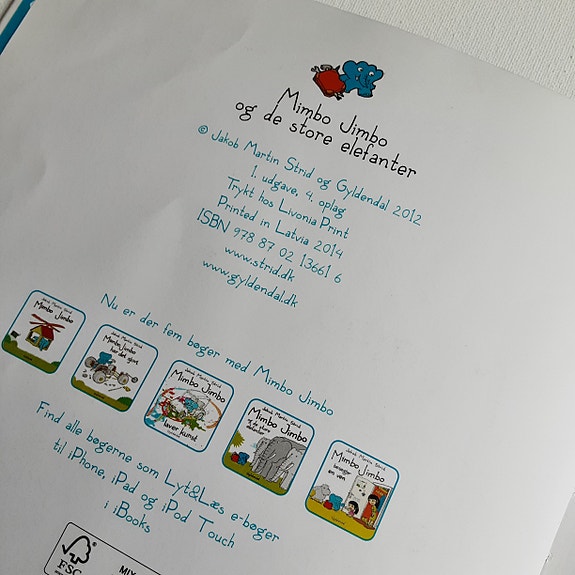 Mimbo Jimbo
og de store elefanter
© Jakob Martin Strid og Gyldendal 2012
1. udgave, 4. oplag
Trykt hos Livonia Print
Printed in Latvia 2014
ISBN 978 87 02 13661 6
www.strid.dk
www.gyldendal.dk
Nu er der fem bøger med Mimbo Jimbo
Jakob Martin Strid
Mimbo Jimbo
Jakob Martin Strid
Mimbo Jimbo
har det sjovt
Jakob Martin Strid
Mimbo Jimbo
laver kunst
Jakob Martin Strid
Mimbo Jimbo
og de store
elefanter
Jakob Martin Strid
Mimbo Jimbo
Find alle bøgerne som Lyt&Læs e-bøger
til iPhone, iPad og iPod Touch
i iBooks
FSC
MIX